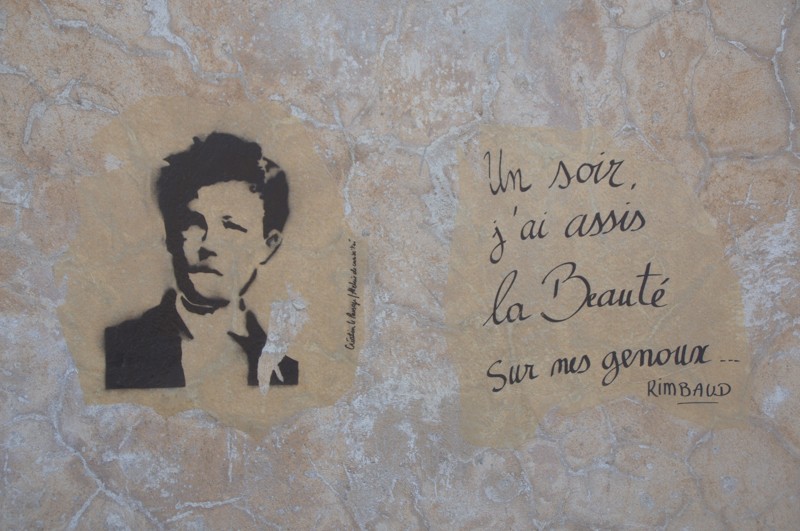 Un soir,
j'ai assis
la Beauté
sur mes genoux...
RIMBAUD